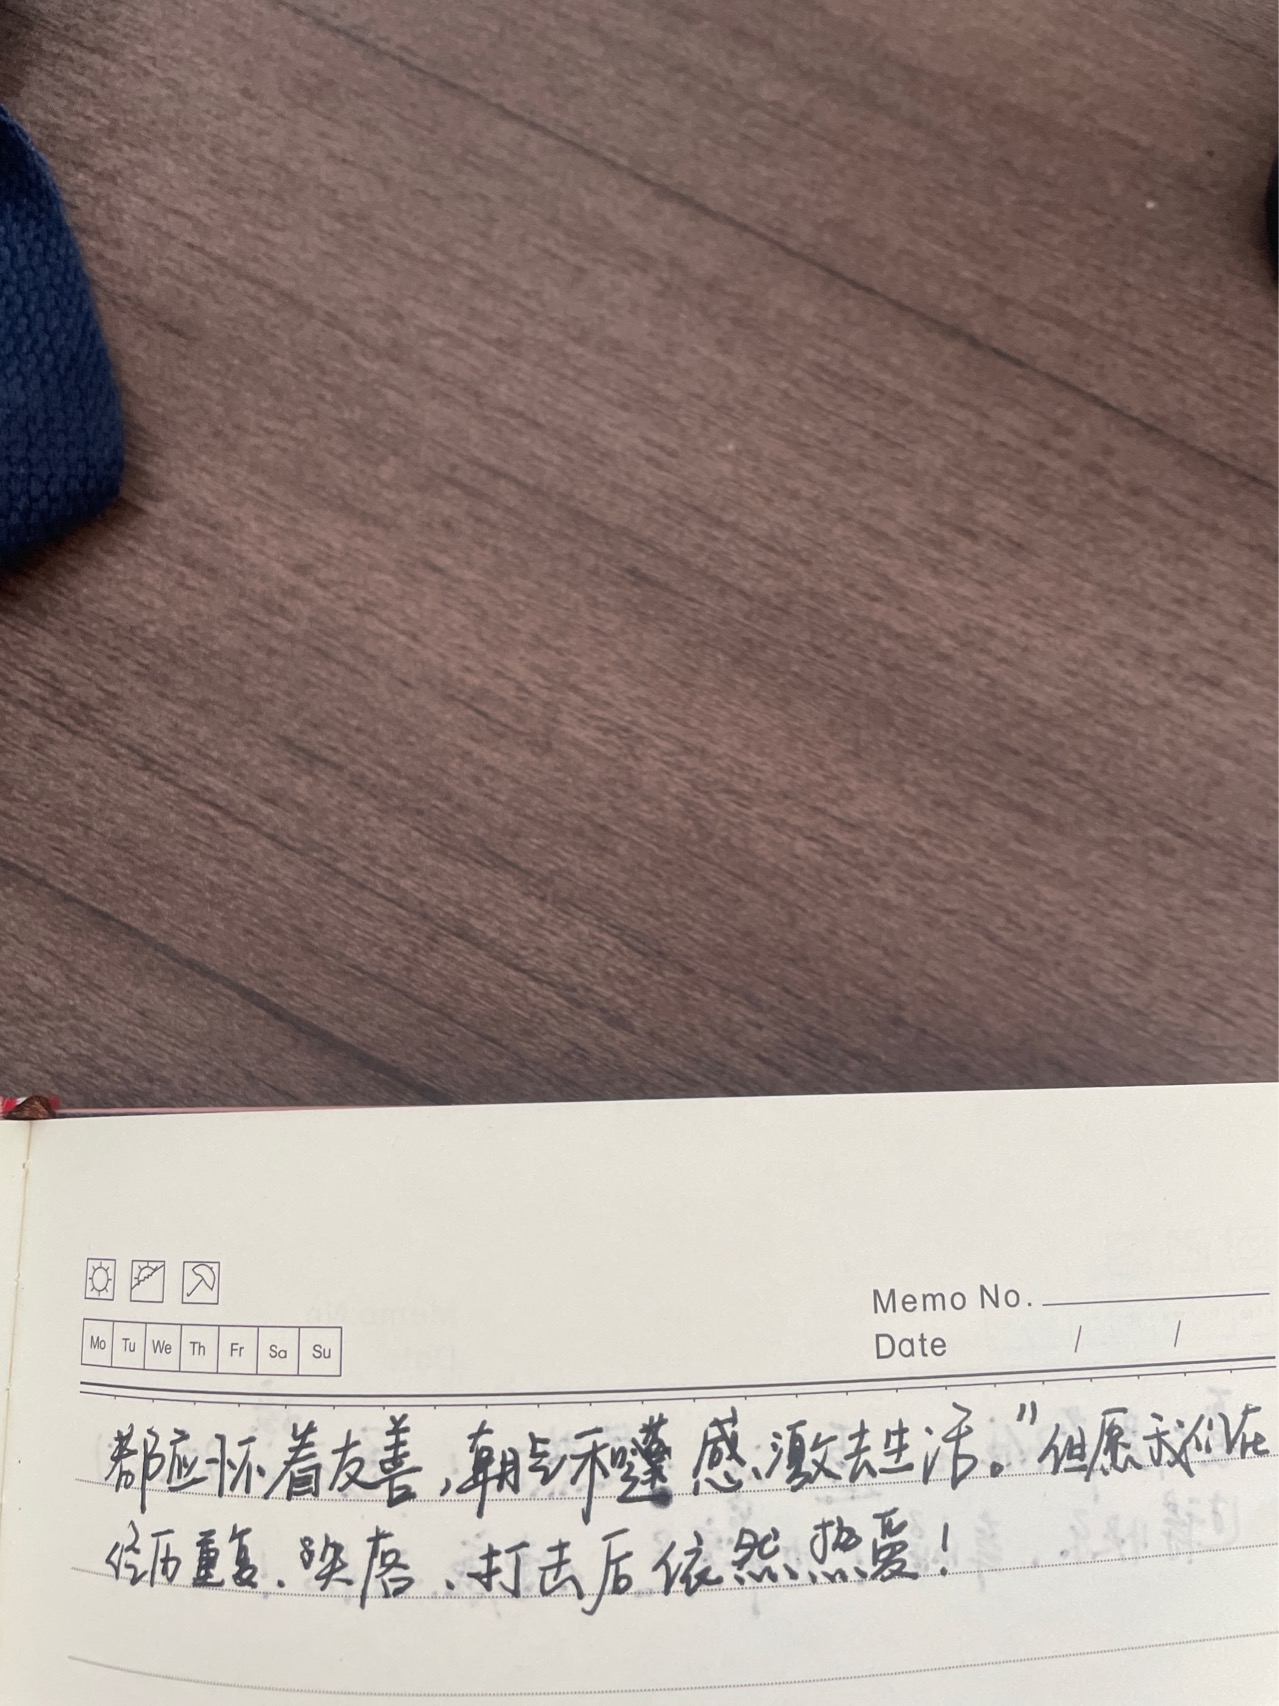 Memo No.
Date / /
Mo Tu We Th Fr Sa Su
都应怀着友善,朝气和 感激去生活。”但愿我们在
经历重复、失落、打击后依然热爱!